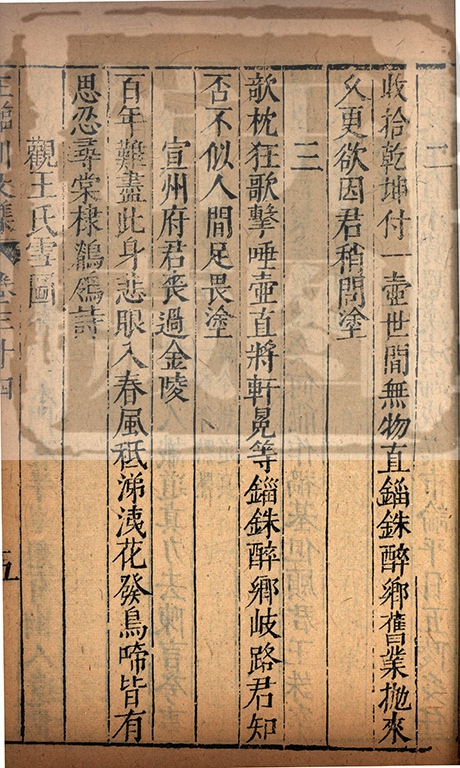 二
收拾乾坤付一壺世間無物直錙銖醉鄉舊業抛來
久更欲因君稍問塗
三
欹枕狂歌擊唾壺直將軒冕等錙銖醉鄉岐路君知
否不似人間足畏塗
宣州府君喪過金陵
百年難盡此身悲眼入春風秪涕洟花發鳥啼皆有
思忍尋棠棣鶺鴒詩
觀王氏雪圖
王臨川文集 卷三十四 五